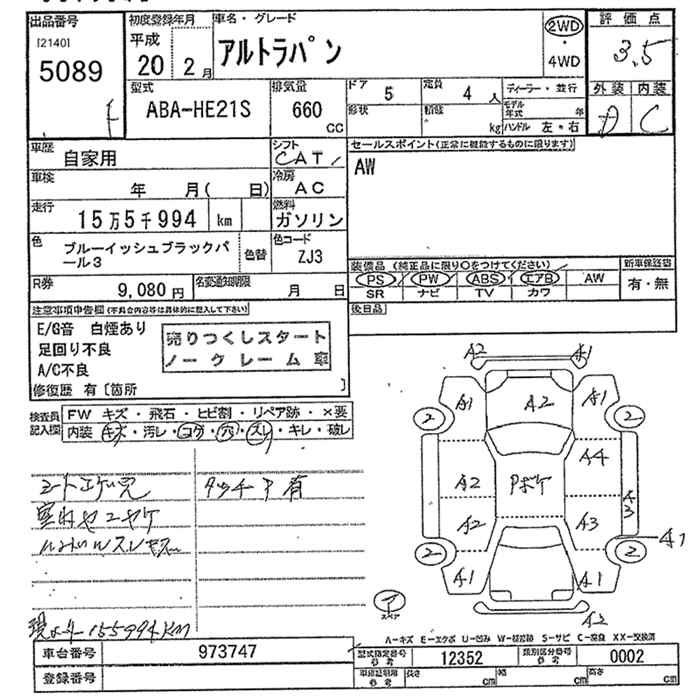 出品番号
[2140]
5089
初度登録年月
平成
20 2月
車名・グレード
アルトラパン
2WD
・
4WD
評価点
3.5
外装 内装
D C
型式
ABA-HE21S
排気量
660
CC
ドア 5
定員 4 人
形状
積載 kg
ディーラー・並行
モデル年式 年
ハンドル 左・右
車歴
自家用
シフト
CAT
車検
年 月( 日)
冷房
AC
走行
15万5千994 km
燃料
ガソリン
色
ブルーイッシュブラックパール3
色替
色コード
ZJ3
R券
9,080円
名変通知期限
月 日
セールスポイント(正常に機能するものに限ります)
AW
装備品 (純正品に限り○をつけてください)
PS PW ABS エアB AW
SR ナビ TV カワ
新車保証書
有・無
後日品
注意事項申告欄 (不具合内容等は具体的に記入して下さい)
E/G音 白煙あり
足回り不良
A/C不良
修復歴 有 [箇所 ]
売りつくしスタート
ノークレーム車
検査員記入欄
FW キズ・飛石・ヒビ割・リペア跡・×要
内装 キズ・汚レ・コゲ・穴・スレ・キレ・破レ
タッチ P 有
155994KM
A2 A1
A1 A2 A1
2 2
A4
A2 Pボケ
A3
A2 A3
2 2 A1
A1 A1
A2
スペア
A-キズ E-エクボ U-凹み W-補修跡 S-サビ C-腐食 XX-交換済
車台番号
973747
型式指定番号
参考
12352
類別区分番号
参考
0002
登録番号
車庫証明用
参考
長さ cm
幅 cm
高さ cm